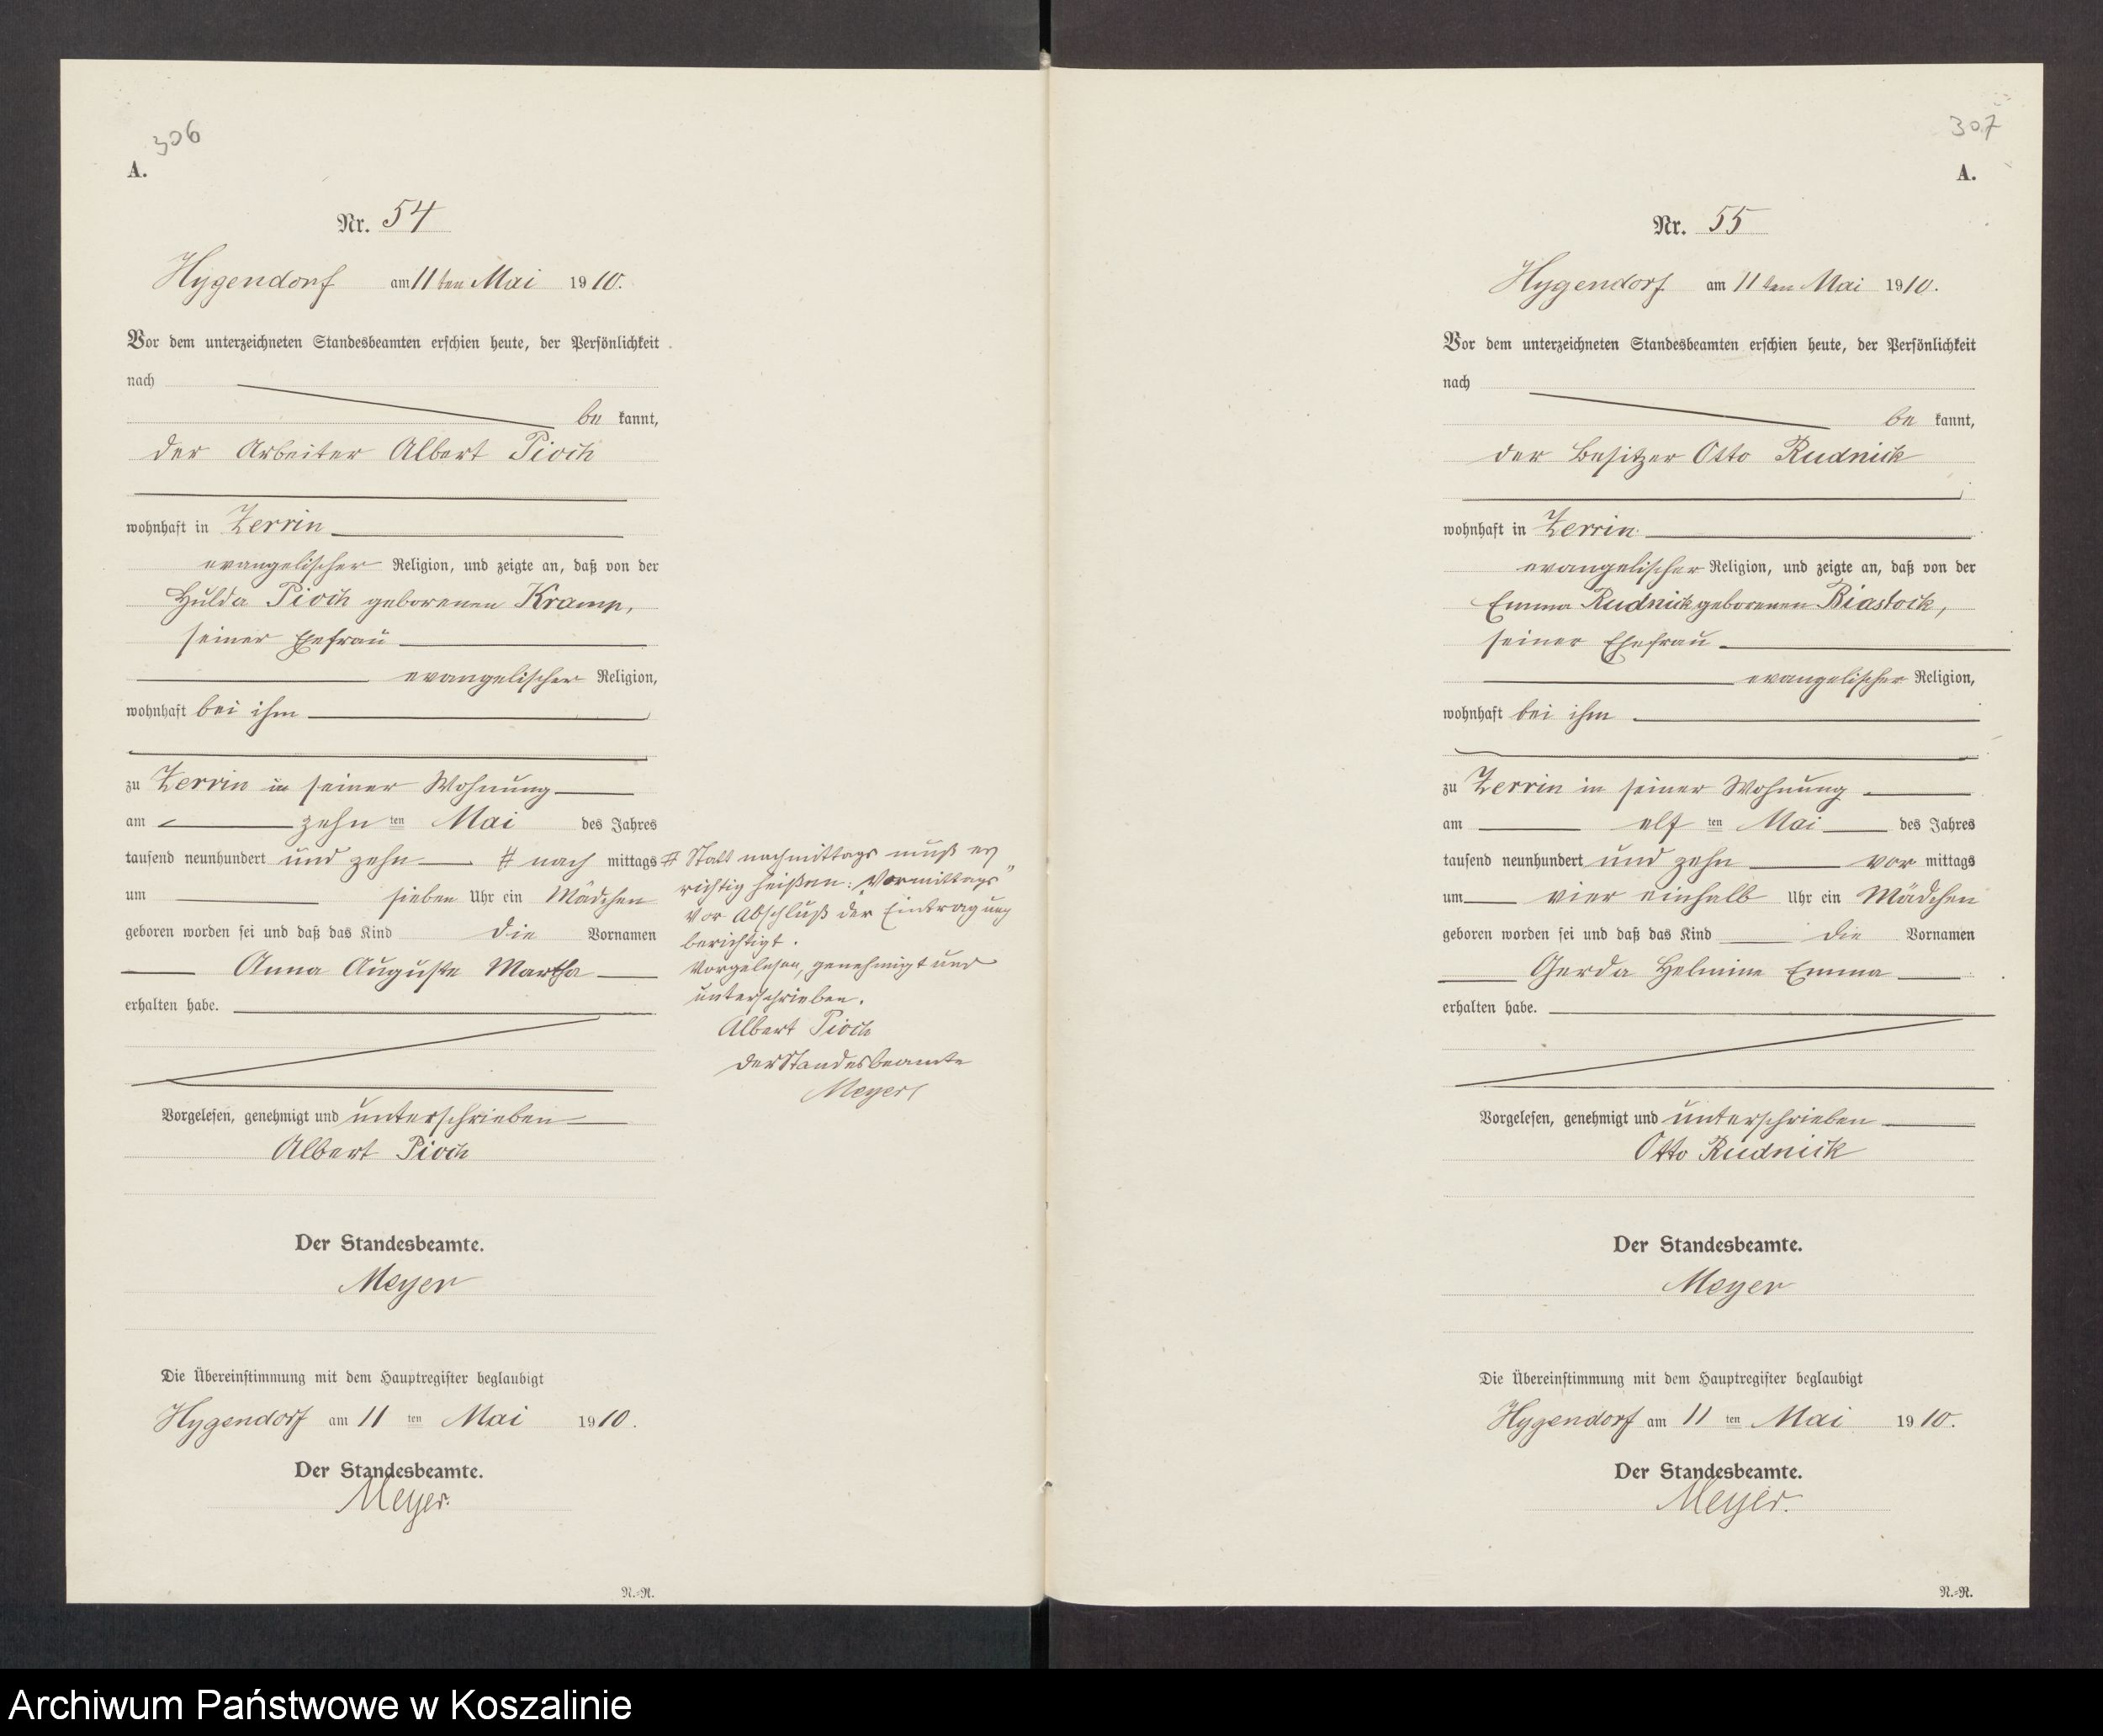 306
A.
Nr. 54
Hygendorf am 11ten Mai 1910.
Vor dem unterzeichneten Standesbeamten erschien heute, der Persönlichkeit
nach
be kannt,
der Arbeiter Albert Pioch
wohnhaft in Zerrin
evangelischer Religion, und zeigte an, daß von der
Hulda Pioch geborenen Kramp,
seiner Ehefrau
evangelischer Religion,
wohnhaft bei ihm
zu Zerrin in seiner Wohnung
am zehn ten Mai des Jahres
tausend neunhundert und zehn # nach mittags
um sieben Uhr ein Mädchen
geboren worden sei und daß das Kind die Vornamen
Anna Auguste Martha
erhalten habe.
# Statt nachmittags muß es
richtig heißen: „Vormittags"
Vor Abschluß der Eintragung
berichtigt.
Vorgelesen, genehmigt und
unterschrieben.
Albert Pioch
Der Standesbeamte
Meyer
Vorgelesen, genehmigt und unterschrieben
Albert Pioch
Der Standesbeamte.
Meyer
Die Übereinstimmung mit dem Hauptregister beglaubigt
Hygendorf am 11 ten Mai 1910.
Der Standesbeamte.
Meyer.
N.-R.
307
A.
Nr. 55
Hygendorf am 11ten Mai 1910.
Vor dem unterzeichneten Standesbeamten erschien heute, der Persönlichkeit
nach
be kannt,
der Besitzer Otto Rudnick
wohnhaft in Zerrin
evangelischer Religion, und zeigte an, daß von der
Emma Rudnick geborenen Biastock,
seiner Ehefrau
evangelischer Religion,
wohnhaft bei ihm
zu Zerrin in seiner Wohnung
am elf ten Mai des Jahres
tausend neunhundert und zehn vor mittags
um vier einhalb Uhr ein Mädchen
geboren worden sei und daß das Kind die Vornamen
Gerda Helmine Emma
erhalten habe.
Vorgelesen, genehmigt und unterschrieben
Otto Rudnick
Der Standesbeamte.
Meyer
Die Übereinstimmung mit dem Hauptregister beglaubigt
Hygendorf am 11 ten Mai 1910.
Der Standesbeamte.
Meyer.
N.-R.
Archiwum Państwowe w Koszalinie